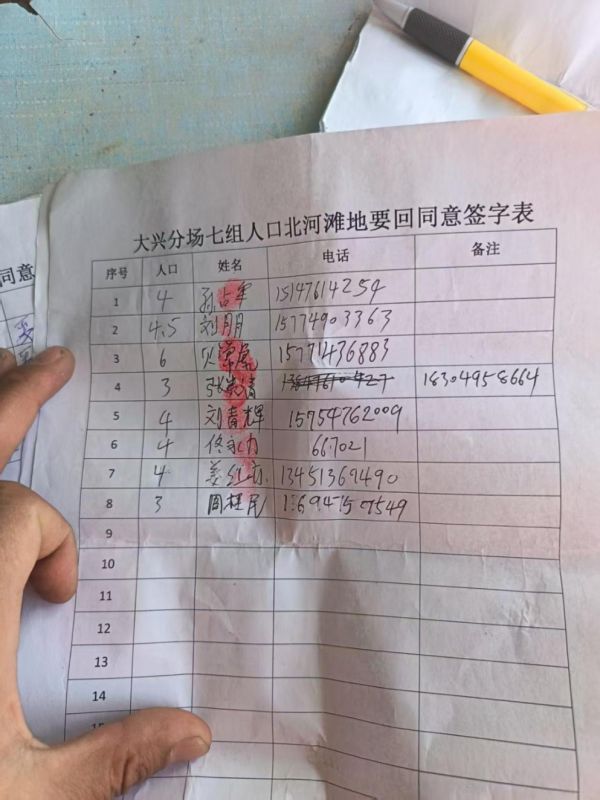 大兴分场七组人口北河滩地要回同意签字表
序号 人口 姓名 电话 备注
1 4 孙占军 15147614254
2 4.5 刘朋 15774903363
3 6 15771436883
4 3 18304958664
5 4 刘青辉 15754762009
6 4 佟永力 667021
7 4 姜红 13451369490
8 3 周桂民 15694757549
9
10
11
12
13
14
15
同意